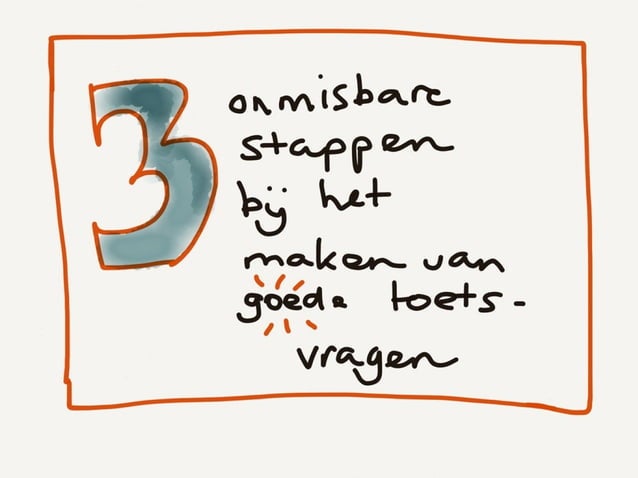 3
onmisbare
stappen
bij het
maken van
goede toets-
vragen